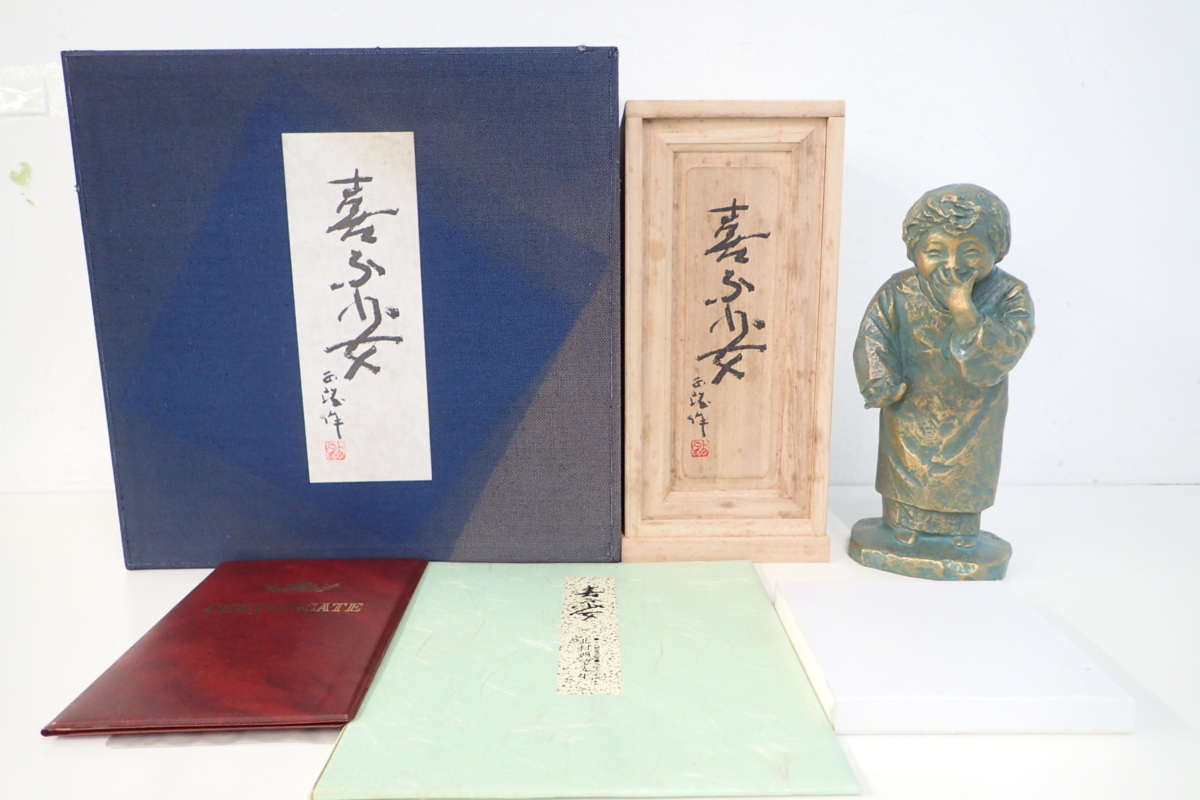 喜ふ少女
西望作
喜ふ少女
西望作
CERTIFICATE
喜ふ少女